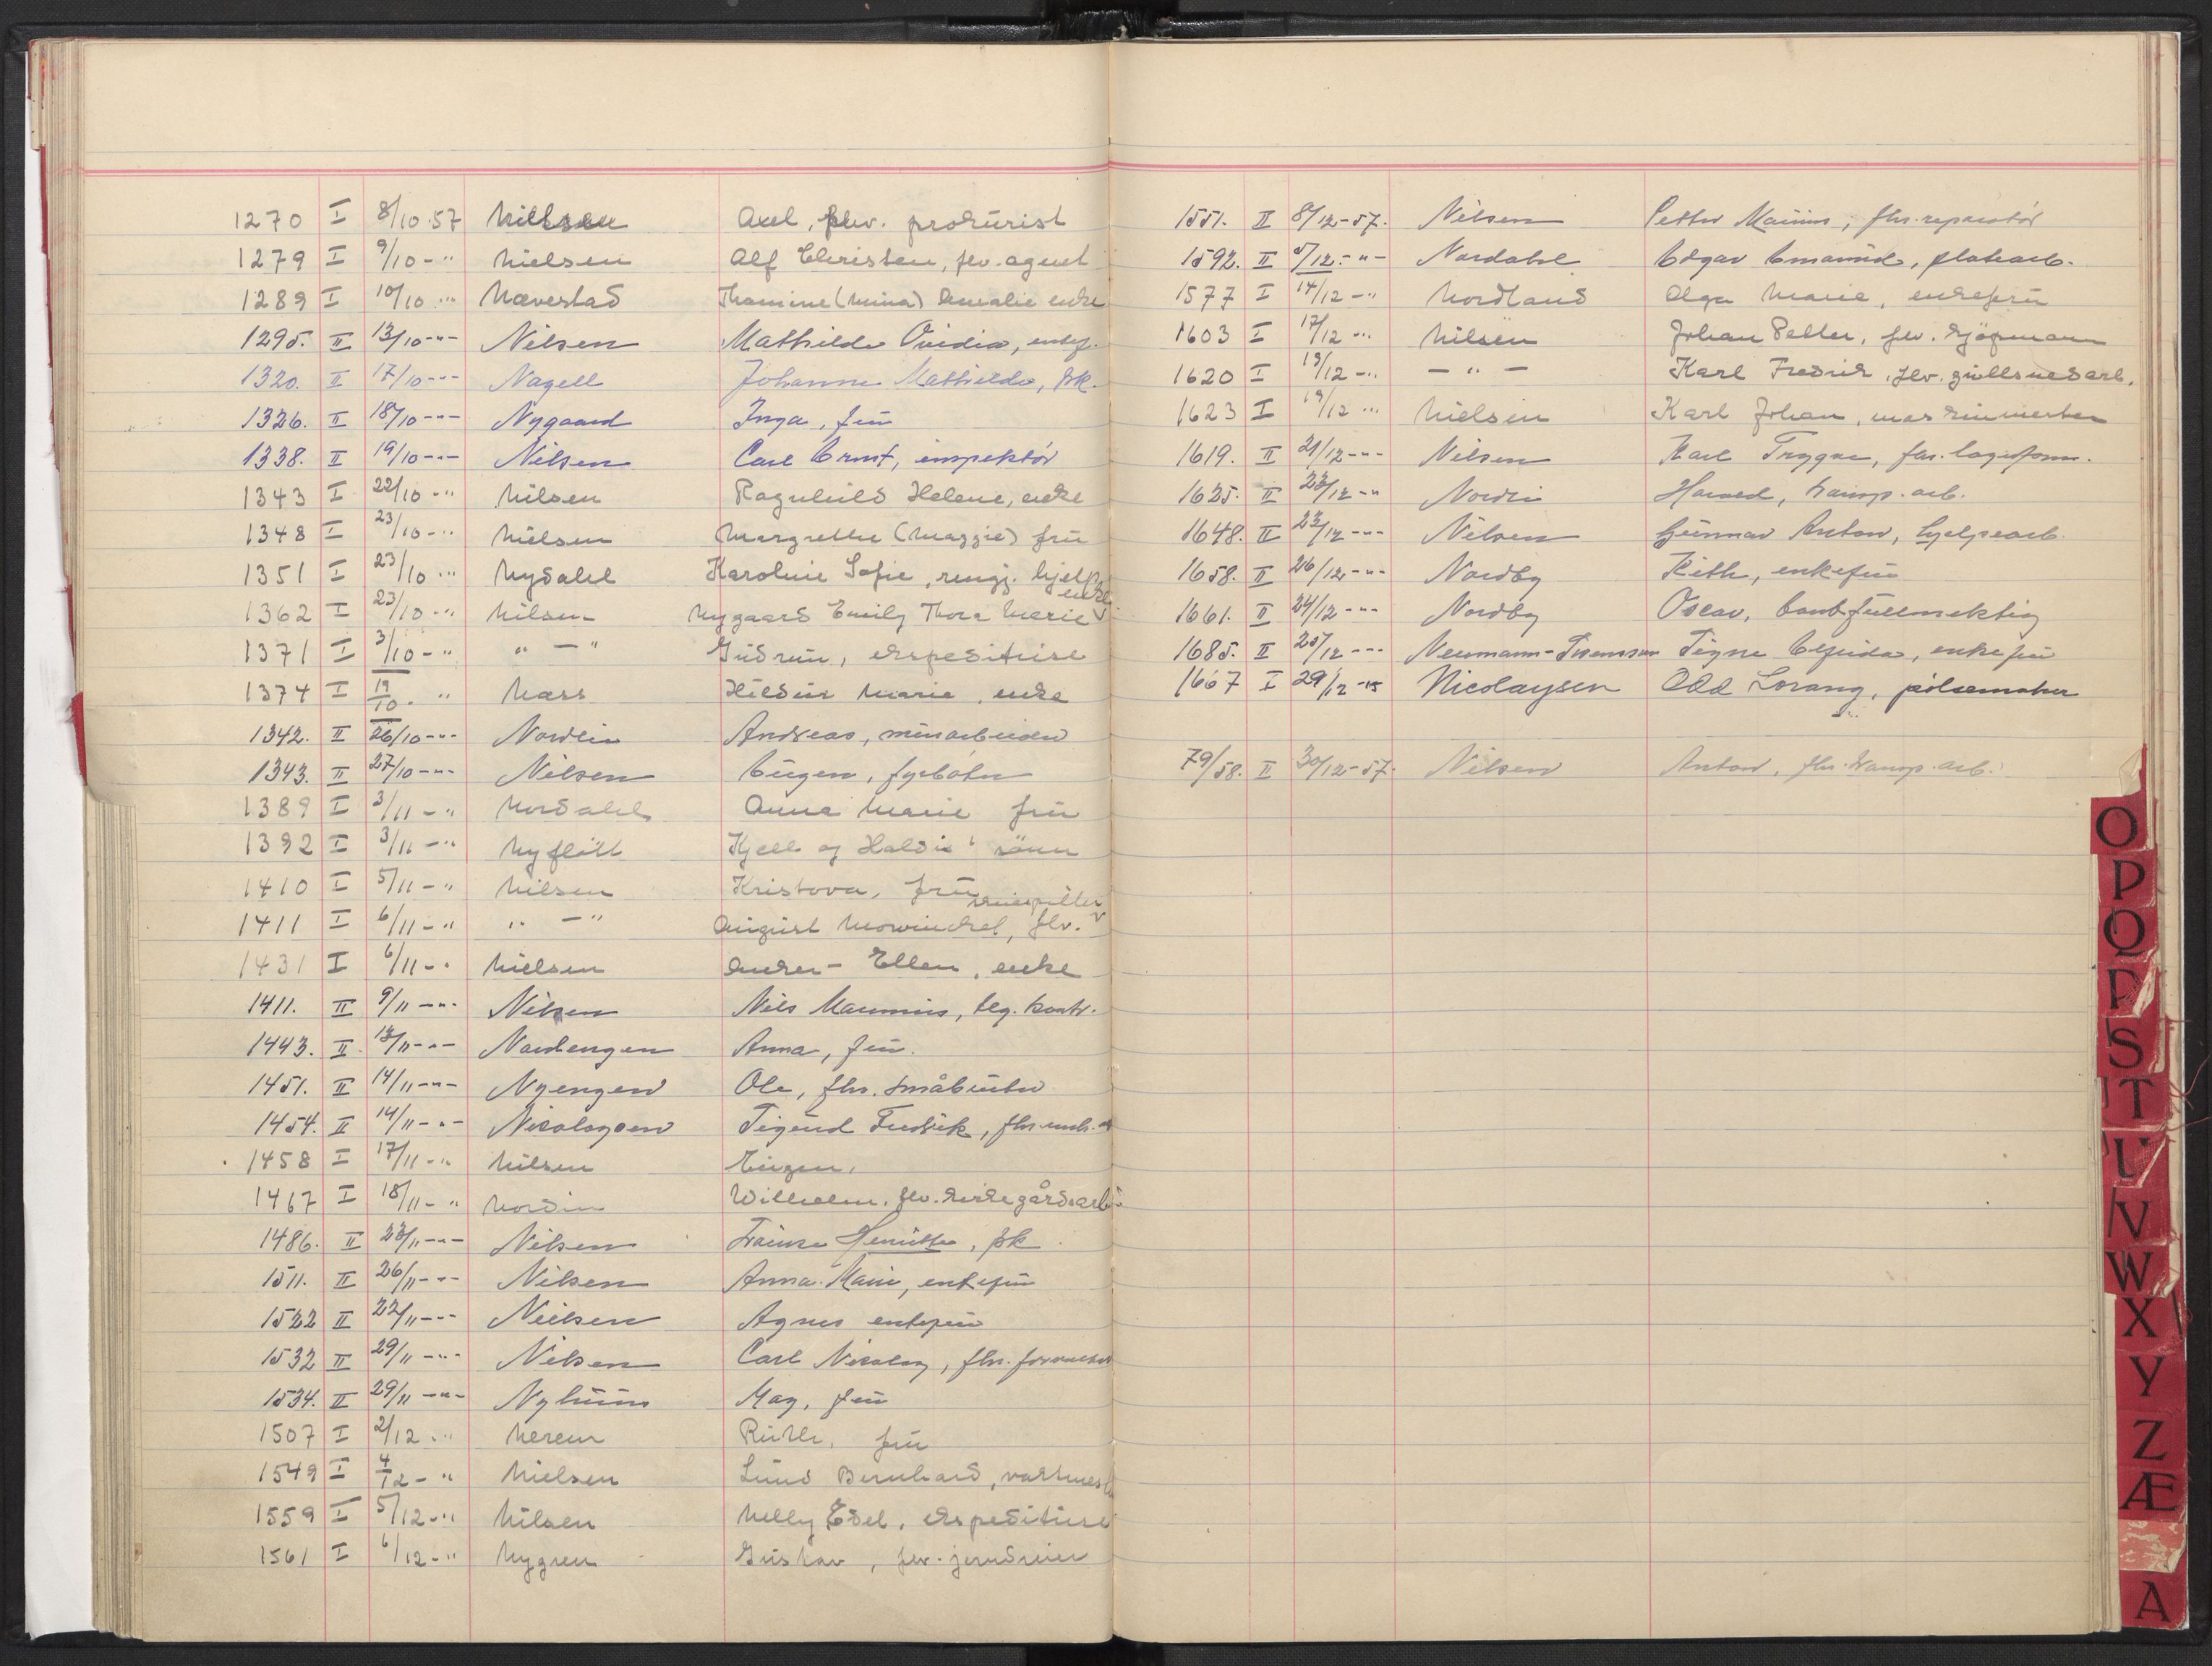 1270 I 8/10-57 Nielsen Axel, flv. prokurist
1279 I 9/10-" Nielsen Alf Christen, flv. agent
1289 I 10/10-" Nævestad Thomine (Mina) Amalie enke
1295. II 13/10-"- Nilsen Mathilde Ovidia, enkef.
1320. II 17/10-"- Nagell Johanne Mathilde, frk.
1326. II 18/10-"- Nygaard Inga, fru
1338. II 19/10-"- Nilsen Carl Ernst, inspektör
1343 I 22/10-" Nilsen Ragnhild Helene, enke
1348 I 23/10-" Nielsen Margrethe (Maggie) fru
1351 I 23/10-" Nydahl Karoline Sofie, rengj. hjelp
1362 I 23/10-" Nilsen Nygaard Emily Thora Marie enke
1371 I 3/10-" " - " Gudrun, ekspeditrise
1374 I 19/10-" Næss Hildur Marie, enke
1342. II 26/10-"- Nordlie Andreas, minarbeider
1343. II 27/10-"- Nilsen Eugen, fyrböter
1389 I 3/11-" Nordahl Anna Marie fru
1392 I 3/11-" Nyflöt Kjell og Haldis' sönn
1410 I 5/11-" Nilsen Kristova, fru
1411 I 6/11-" " - " August Mowinckel, flv.
1431 I 6/11-" Nielsen Anker- Ellen, enke
1411. II 9/11-"- Nilsen Nils Magnus, teg. kontr.
1443. II 13/11-"- Nordengen Anna, fru.
1451. II 14/11-"- Nyengen Ole, fhv. småbruker
1454. II 14/11-"- Nicolaysen Sigurd Fredrik, fhv.
1458 I 17/11-" Nilsen Eugen,
1467 I 18/11-" Nordin Wilhelm, flv. kirkegårdsarb.
1486. II 23/11-"- Nilsen Henriette, frk.
1511. II 26/11-"- Nilsen Anna Marie, enkefru
1522 II 22/11-"- Nielsen Agnes enkefru
1532 II 29/11-"- Nilsen Carl Nicolay, fhv.
1534. II 29/11-"- Nyhuus May, fru
1507 I 2/12-" Nerem Ruth, fru
1549 I 4/12-" Nielsen Lund Bernhard, vaktmester
1559 I 5/12-" Nilsen Nelly Edel, ekspeditrise
1561 I 6/12-" Nygren Gustav, flv. jerndreier
1551. II 8/12-57. Nilsen Petter Marius, fhv. reparatör
1592. II 5/12-"- Nordahl Edgar Emanuel, platearb.
1577 I 14/12-" Nordland Olga Marie, enkefru
1603 I 17/12-" Nilsen Johan Petter, flv. kjöpmann
1620 I 19/12-" - " - Karl Fredrik, flv. gullsmedarb.
1623 I 19/12-" Nielsen Karl Johan, maskinmester
1619. II 21/12-"- Nilsen Karl Trygve, fhv. lagerform.
1625. II 23/12-" Nordli Harald, transp. arb.
1648. II 23/12-"- Nilsen Gunnar Anton, hjelpearb.
1658. II 26/12-"- Nordby enkefru
1661. II 24/12-"- Nordby Oscar, bankfullmektig
1685. II 25/12-"- Neumann-Svensson Signe Elfrida, enkefru
1667 I 29/12-" Nicolaysen Odd Lorang, pølsemaker
79/58. II 30/12-57. Nilsen Anton, fhv. transp. arb.
O
P
Q
R
S
T
U
V
W
X
Y
Z
Æ
A